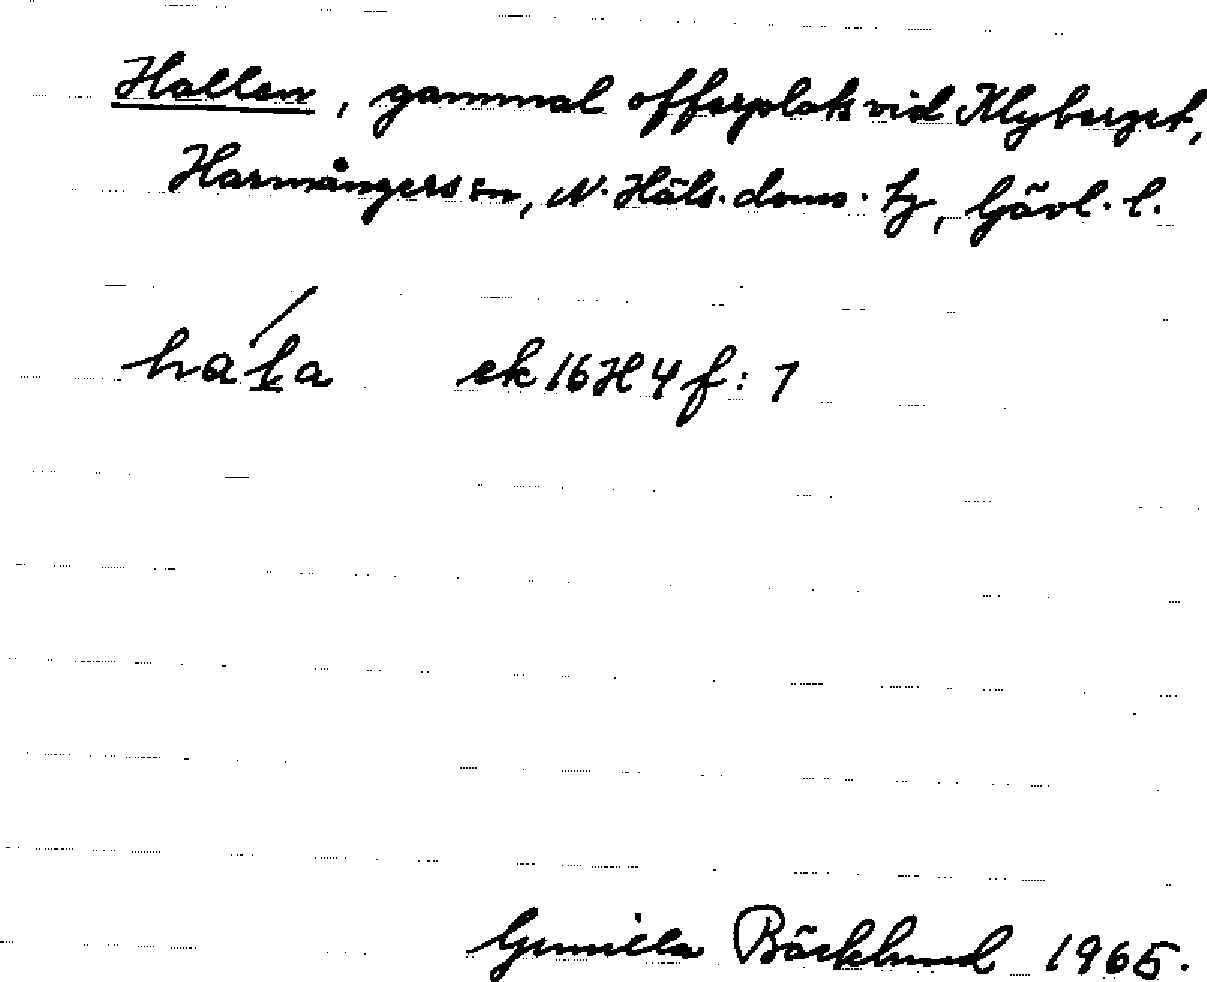 Hallen, gammal offerplats vid Klyberget,
Harmångers sn, N. Häls. doms. tg, Gävl. l.
ha̍ḷa ek 16H4f: 7
Gunilla Bäcklund 1965.